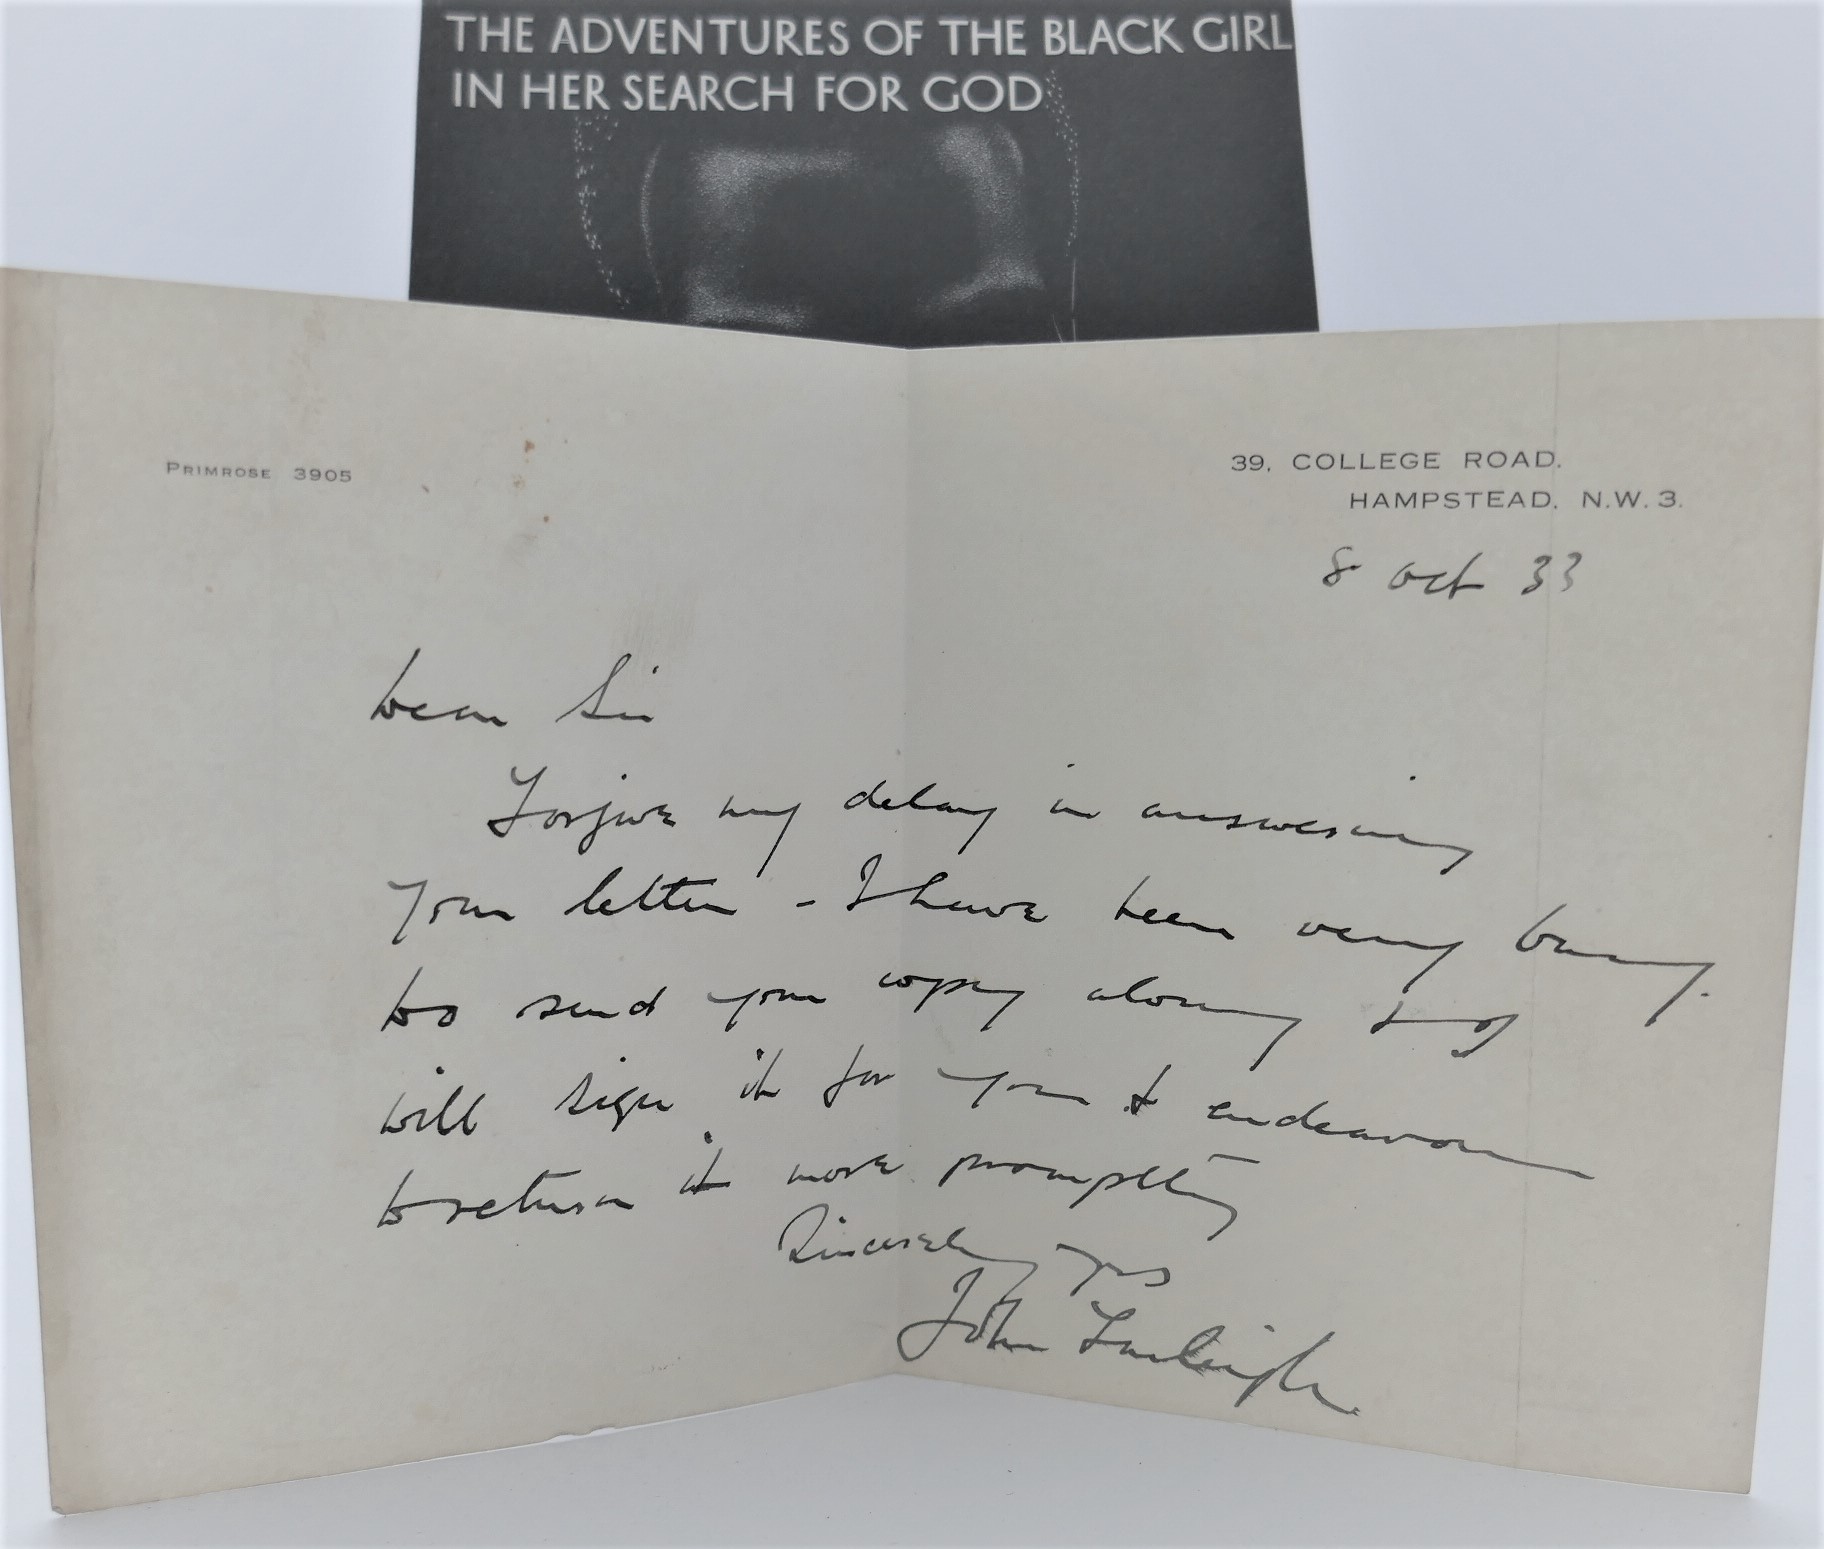 THE ADVENTURES OF THE BLACK GIRL
IN HER SEARCH FOR GOD
PRIMROSE 3905
39, COLLEGE ROAD,
HAMPSTEAD, N.W.3.
8 Oct 33
Dear Sir
Forgive my delay in answering
your letter - I have been very busy.
Do send your copy along & I
will sign it for you & endeavour
to return it more promptly
Sincerely yrs
John Farleigh